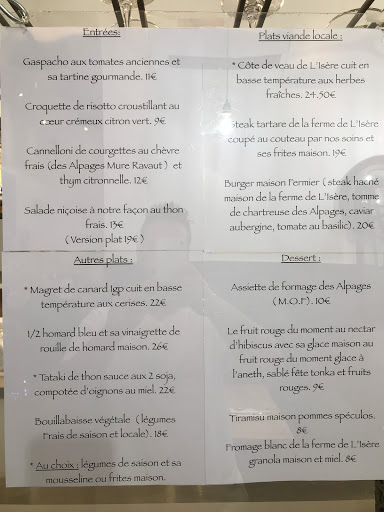 Entrées:
Gaspacho aux tomates anciennes et
sa tartine gourmande. 11€
Croquette de risotto croustillant au
cœur crémeux citron vert. 9€
Cannelloni de courgettes au chèvre
frais (des Alpages Mure Ravaut ) et
thym citronnelle. 12€
Salade niçoise à notre façon au thon
frais. 13€
( Version plat 19€ )
Plats viande locale :
* Côte de veau de L'Isère cuit en
basse température aux herbes
fraîches. 24.50€
Steak tartare de la ferme de L'Isère
coupé au couteau par nos soins et
ses frites maison. 19€
Burger maison Fermier ( steak haché
maison de la ferme de L'Isère, tomme
de chartreuse des Alpages, caviar
aubergine, tomate au basilic). 20€
Autres plats :
* Magret de canard Igp cuit en basse
température aux cerises. 22€
1/2 homard bleu et sa vinaigrette de
rouille de homard maison. 26€
* Tataki de thon sauce aux 2 soja,
compotée d'oignons au miel. 22€
Bouillabaisse végétale ( légumes
Frais de saison et locale). 18€
* Au choix : légumes de saison et sa
mousseline ou frites maison.
Dessert :
Assiette de formage des Alpages
( M.O.F). 10€
Le fruit rouge du moment au nectar
d'hibiscus avec sa glace maison au
fruit rouge du moment glace à
l'aneth, sablé fête tonka et fruits
rouges. 9€
Tiramisu maison pommes spéculos.
8€
Fromage blanc de la ferme de L'Isère
granola maison et miel. 8€